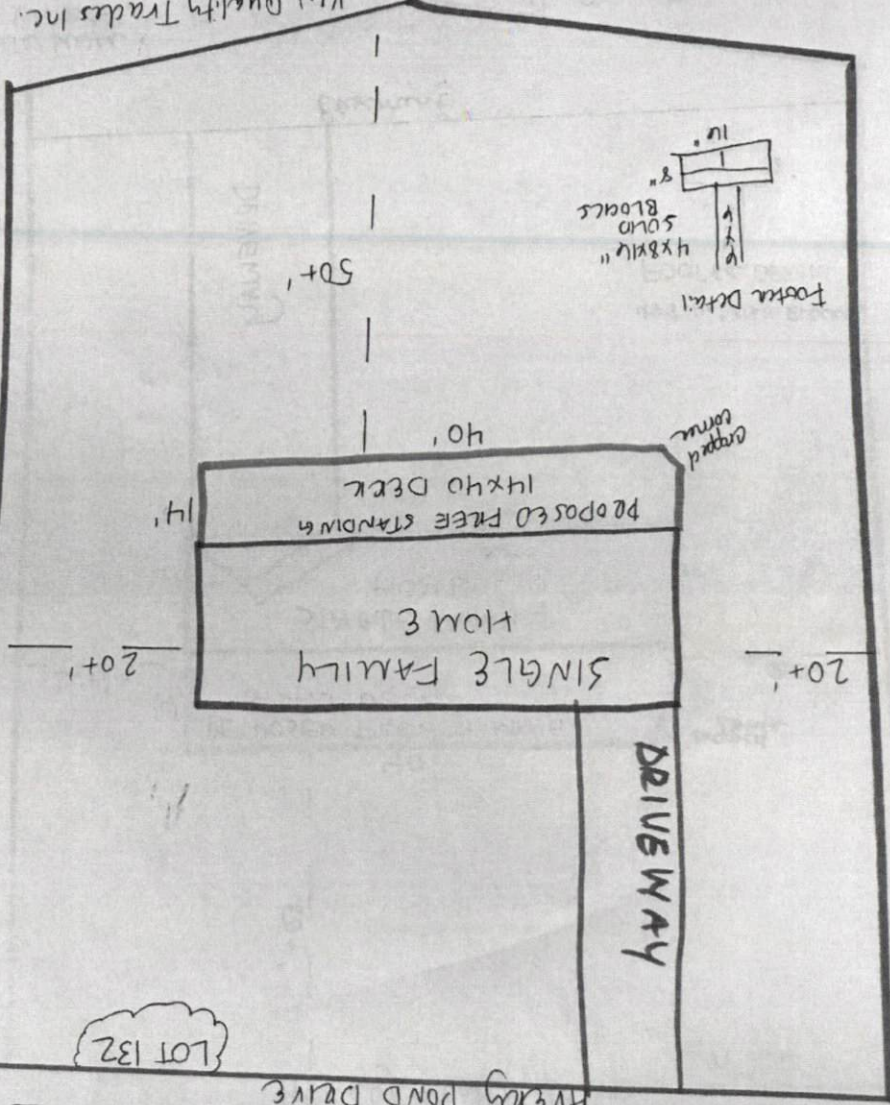 AVERY POND DRIVE
LOT 132
DRIVEWAY
20+'
SINGLE FAMILY
HOME
20+'
PROPOSED FREE STANDING
14x40 DECK
14'
cropped
corner
40'
Footer Detail
6x6
4x8x16"
SOLID
BLOCKS
8"
16"
50+'
Quality Trades Inc.